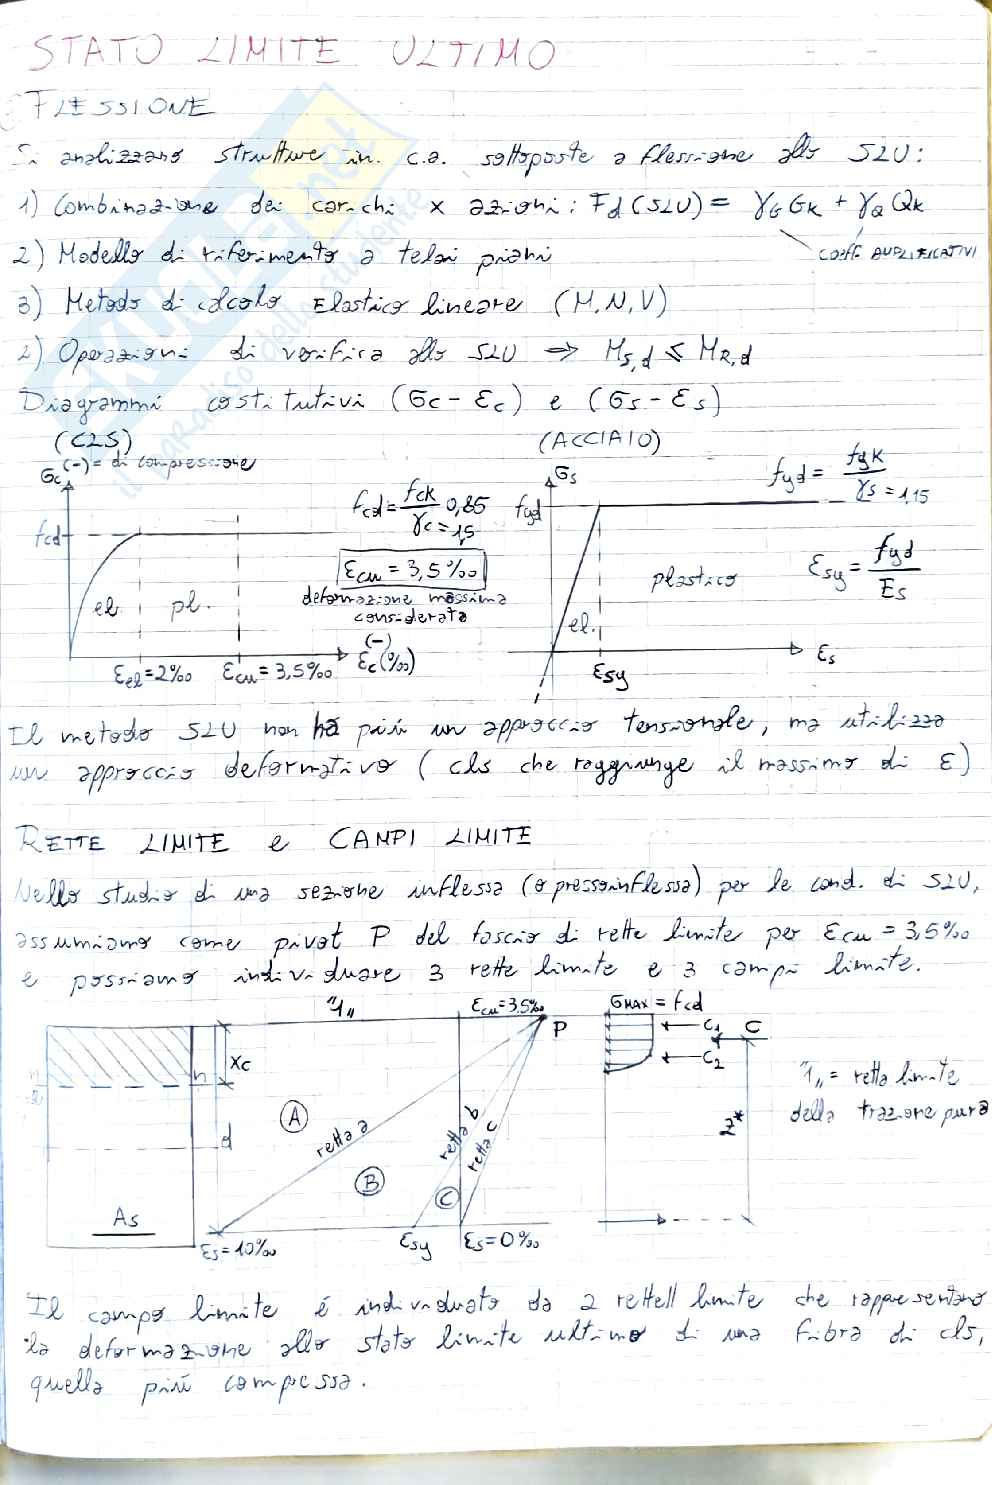 STATO LIMITE ULTIMO
FLESSIONE
Si analizzano strutture in. c.a. sottoposte a flessione allo SLU:
1) Combinazione dei carichi x azioni: Fd(SLU) = γG Gk + γQ Qk
coeff. AMPLIFICATIVI
2) Modello di riferimento a telai piani
3) Metodo di calcolo Elastico lineare (M,N,V)
2) Operazioni di verifica allo SLU ⇒ MS,d ≤ MR,d
Diagrammi costitutivi (σc - εc) e (σs - εs)
(CLS) (ACCIAIO)
σc (-) = di compressione
fcd
fcd = fck/γc=1,5 0,85
εcu = 3,5‰
deformazione massima considerata
el. pl.
εel = 2‰ εcu = 3,5‰ (-) εc(‰)
σs
fyd
fyd = fyk/γs = 1,15
εsy = fyd/Es
plastico
el.
εsy εs
Il metodo SLU non ha più un approccio tensionale, ma utilizza
un approccio deformativo (cls che raggiunge il massimo di ε)
RETTE LIMITE e CAMPI LIMITE
Nello studio di una sezione inflessa (o pressoinflessa) per le cond. di SLU,
assumiamo come pivot P del fascio di rette limite per εcu = 3,5‰
e possiamo individuare 3 rette limite e 3 campi limite.
"1" εcu = 3.5‰ σMAX = fcd
P C1 C
C2
xc
n
d
A
B
C
retta a
retta b
retta c
z*
"1" = retta limite
della trazione pura
As
εs = 10‰ εsy εs = 0‰
Il campo limite é individuato da 2 rettell limite che rappresentano
la deformazione allo stato limite ultimo di una fibra di cls,
quella più compressa.
SKUOLA.net
il paradiso dello studente